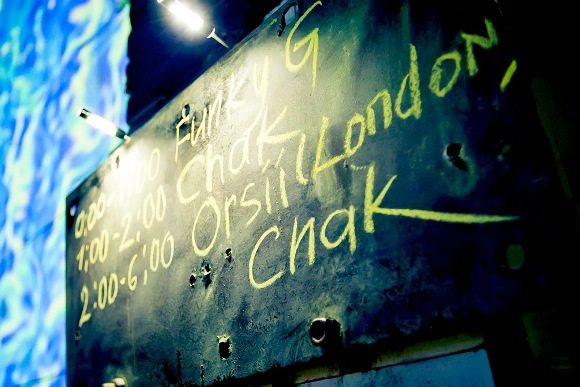 0:00-1:00 Funky G
1:00-2:00 Chak
2:00-6:00 Orsiil London,
Chak